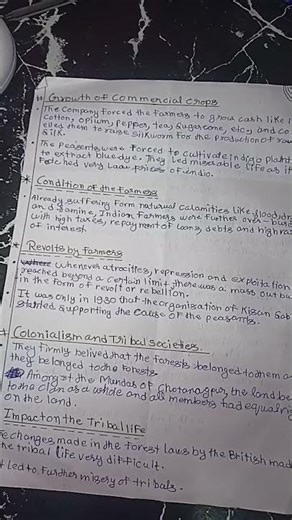 Growth of Commercial Crops
The Company forced the farmers to grow cash like
cotton, opium, pepper, tea, sugarcane, etc, and co
elled them to raise silkworm for the production of raw
silk.
The peasants were forced to cultivate indigo plant
to extract blue dye. They led miserable life as it
fetched very Low prices of
Condition of the Farmers
Already suffering form natural calamities like flood, dr
and famine, Indian farmers were further over-burd
with high taxes, repayment of loans, debts and high ra
of interest.
Revolts by Farmers
Whenever atrocities, repression and exploitation
reached beyond a certain limit there was a mass out bu
in the form of revolt or rebellion.
It was only in 1930 that the organisation of Kisan Sab
started supporting the cause of the peasants.
Colonialism and Tribal societes
They firmly belived that the forests belonged to them a
they belonged to the forests.
Among of the Mundas of Chotanagpur, the land be
to the clan as a whole and all members had equal rig
on the land.
Impact on the Tribal life
e changes made in the forest laws by the British mad
the tribal life very difficult.
t led to further misery of tribals.